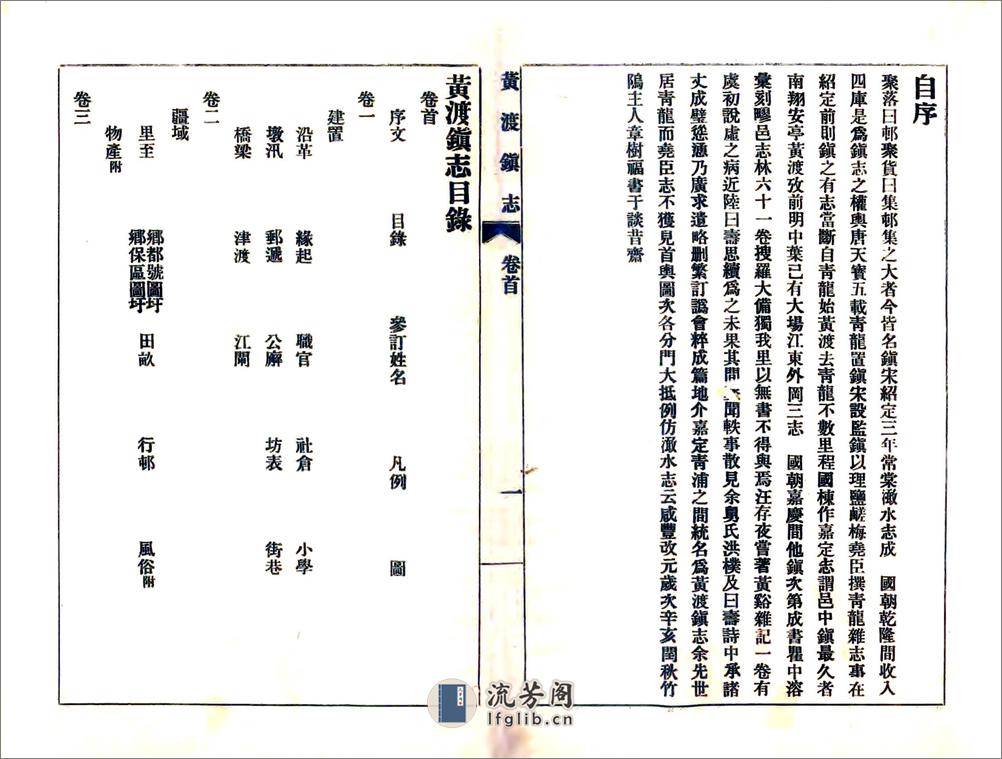 自序
聚落曰邨聚貨曰集邨集之大者今皆名鎭宋紹定三年常棠澉水志成　國朝乾隆間收入
四庫是爲鎭志之權輿唐天寶五載靑龍置鎭宋設監鎭以理鹽鹺梅堯臣撰靑龍雜志事在
紹定前則鎭之有志當斷自靑龍始黃渡去靑龍不數里程國棟作嘉定志謂邑中鎭最久者
南翔安亭黃渡攷前明中葉已有大場江東外岡三志　國朝嘉慶間他鎭次第成書瞿中溶
彙刻疁邑志林六十一卷搜羅大備獨我里以無書不得與焉汪存夜嘗著黃谿雜記一卷有
虞初說虛之病近陸曰壽思續爲之未果其間聞軼事散見余舅氏洪樸及曰壽詩中承諸
丈成璧慫慂乃廣求遺略删繁訂譌會粹成篇地介嘉定靑浦之間統名爲黃渡鎭志余先世
居靑龍而堯臣志不獲見首輿圖次各分門大抵例仿澉水志云咸豐改元歲次辛亥閏秋竹
隝主人章樹福書于談昔齋
黃渡鎭志　卷首　一
黃渡鎭志目錄
卷首
序文　目錄　參訂姓名　凡例　圖
卷一
建置
沿革　緣起　職官　社倉　小學
墩汛　郵遞　公廨　坊表　街巷
橋梁　津渡　江閘
卷二
疆域
里至　鄉都號圖圩　鄉保區圖圩　田畝　行邨　風俗附
物產附
卷三
流芳阁
lfglib.cn